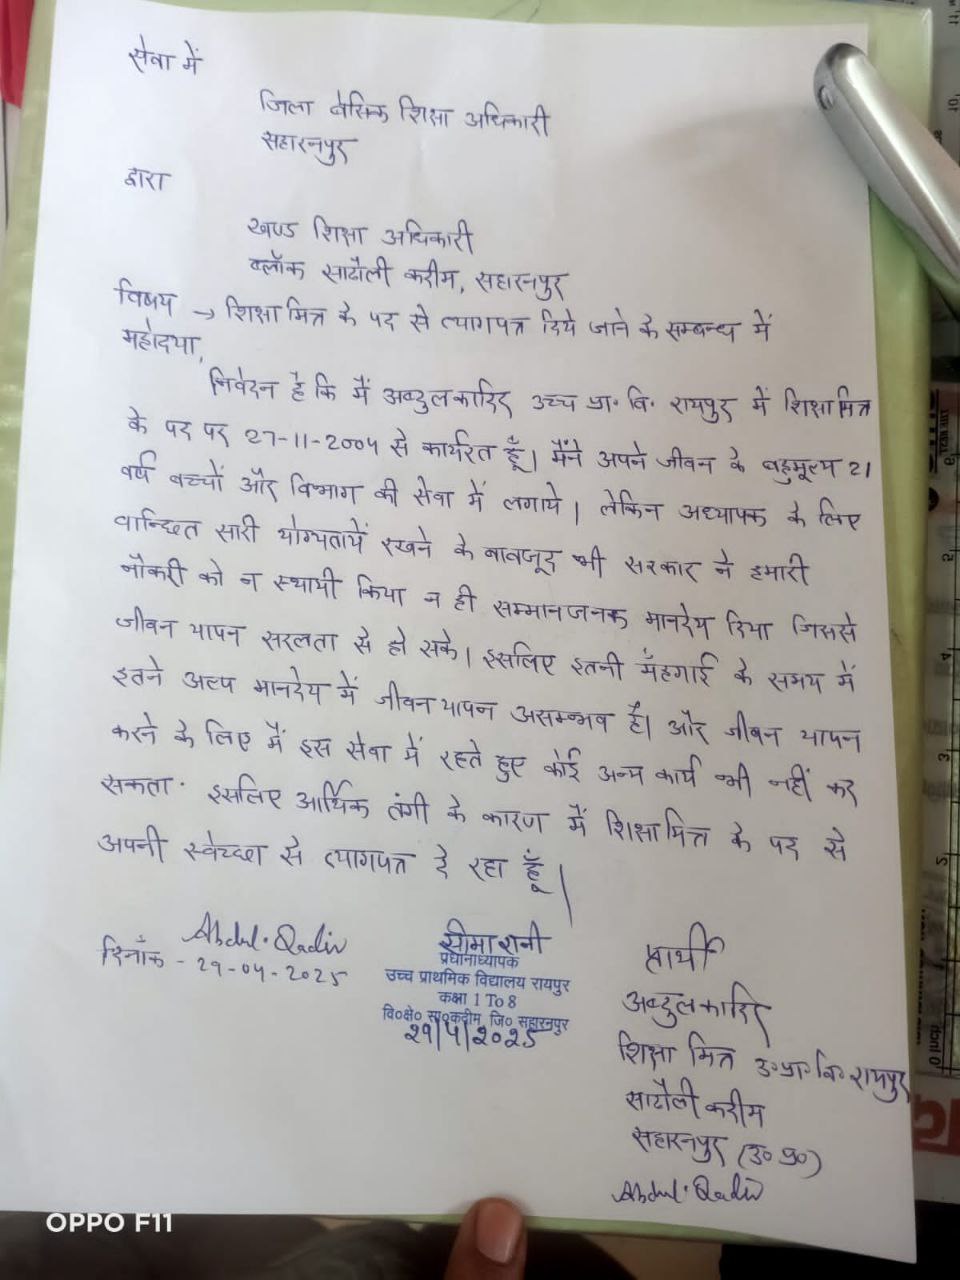 सेवा में
जिला बेसिक शिक्षा अधिकारी
सहारनपुर
द्वारा
खण्ड शिक्षा अधिकारी
ब्लॉक साढौली करीम, सहारनपुर
विषय → शिक्षा मित्र के पद से त्यागपत्र दिये जाने के सम्बन्ध में
महोदया,
निवेदन है कि मैं अब्दुल कादिर उच्च प्रा. वि. रायपुर में शिक्षा मित्र
के पद पर 27-11-2004 से कार्यरत हूँ। मैंने अपने जीवन के बहुमूल्य 21
वर्ष बच्चों और विभाग की सेवा में लगाये। लेकिन अध्यापक के लिए
वान्छित सारी योग्यतायें रखने के बावजूद भी सरकार ने हमारी
नौकरी को न स्थायी किया न ही सम्मानजनक मानदेय दिया जिससे
जीवन यापन सरलता से हो सके। इसलिए इतनी मँहगाई के समय में
इतने अल्प मानदेय में जीवन यापन असम्भव है। और जीवन यापन
करने के लिए मैं इस सेवा में रहते हुए कोई अन्य कार्य भी नहीं कर
सकता. इसलिए आर्थिक तंगी के कारण मैं शिक्षा मित्र के पद से
अपनी स्वेच्छा से त्यागपत्र दे रहा हूँ।
Abdul.Qadir
दिनाँक - 29-04-2025
सीमा रानी
प्रधानाध्यापक
उच्च प्राथमिक विद्यालय रायपुर
कक्षा 1 To 8
वि०क्षे० सा०कदीम, जि० सहारनपुर
29/4/2025
प्रार्थी
अब्दुल कादिर
शिक्षा मित्र उ.प्रा.वि. रायपुर
साढौली करीम
सहारनपुर (उ० प्र०)
Abdul.Qadir
OPPO F11